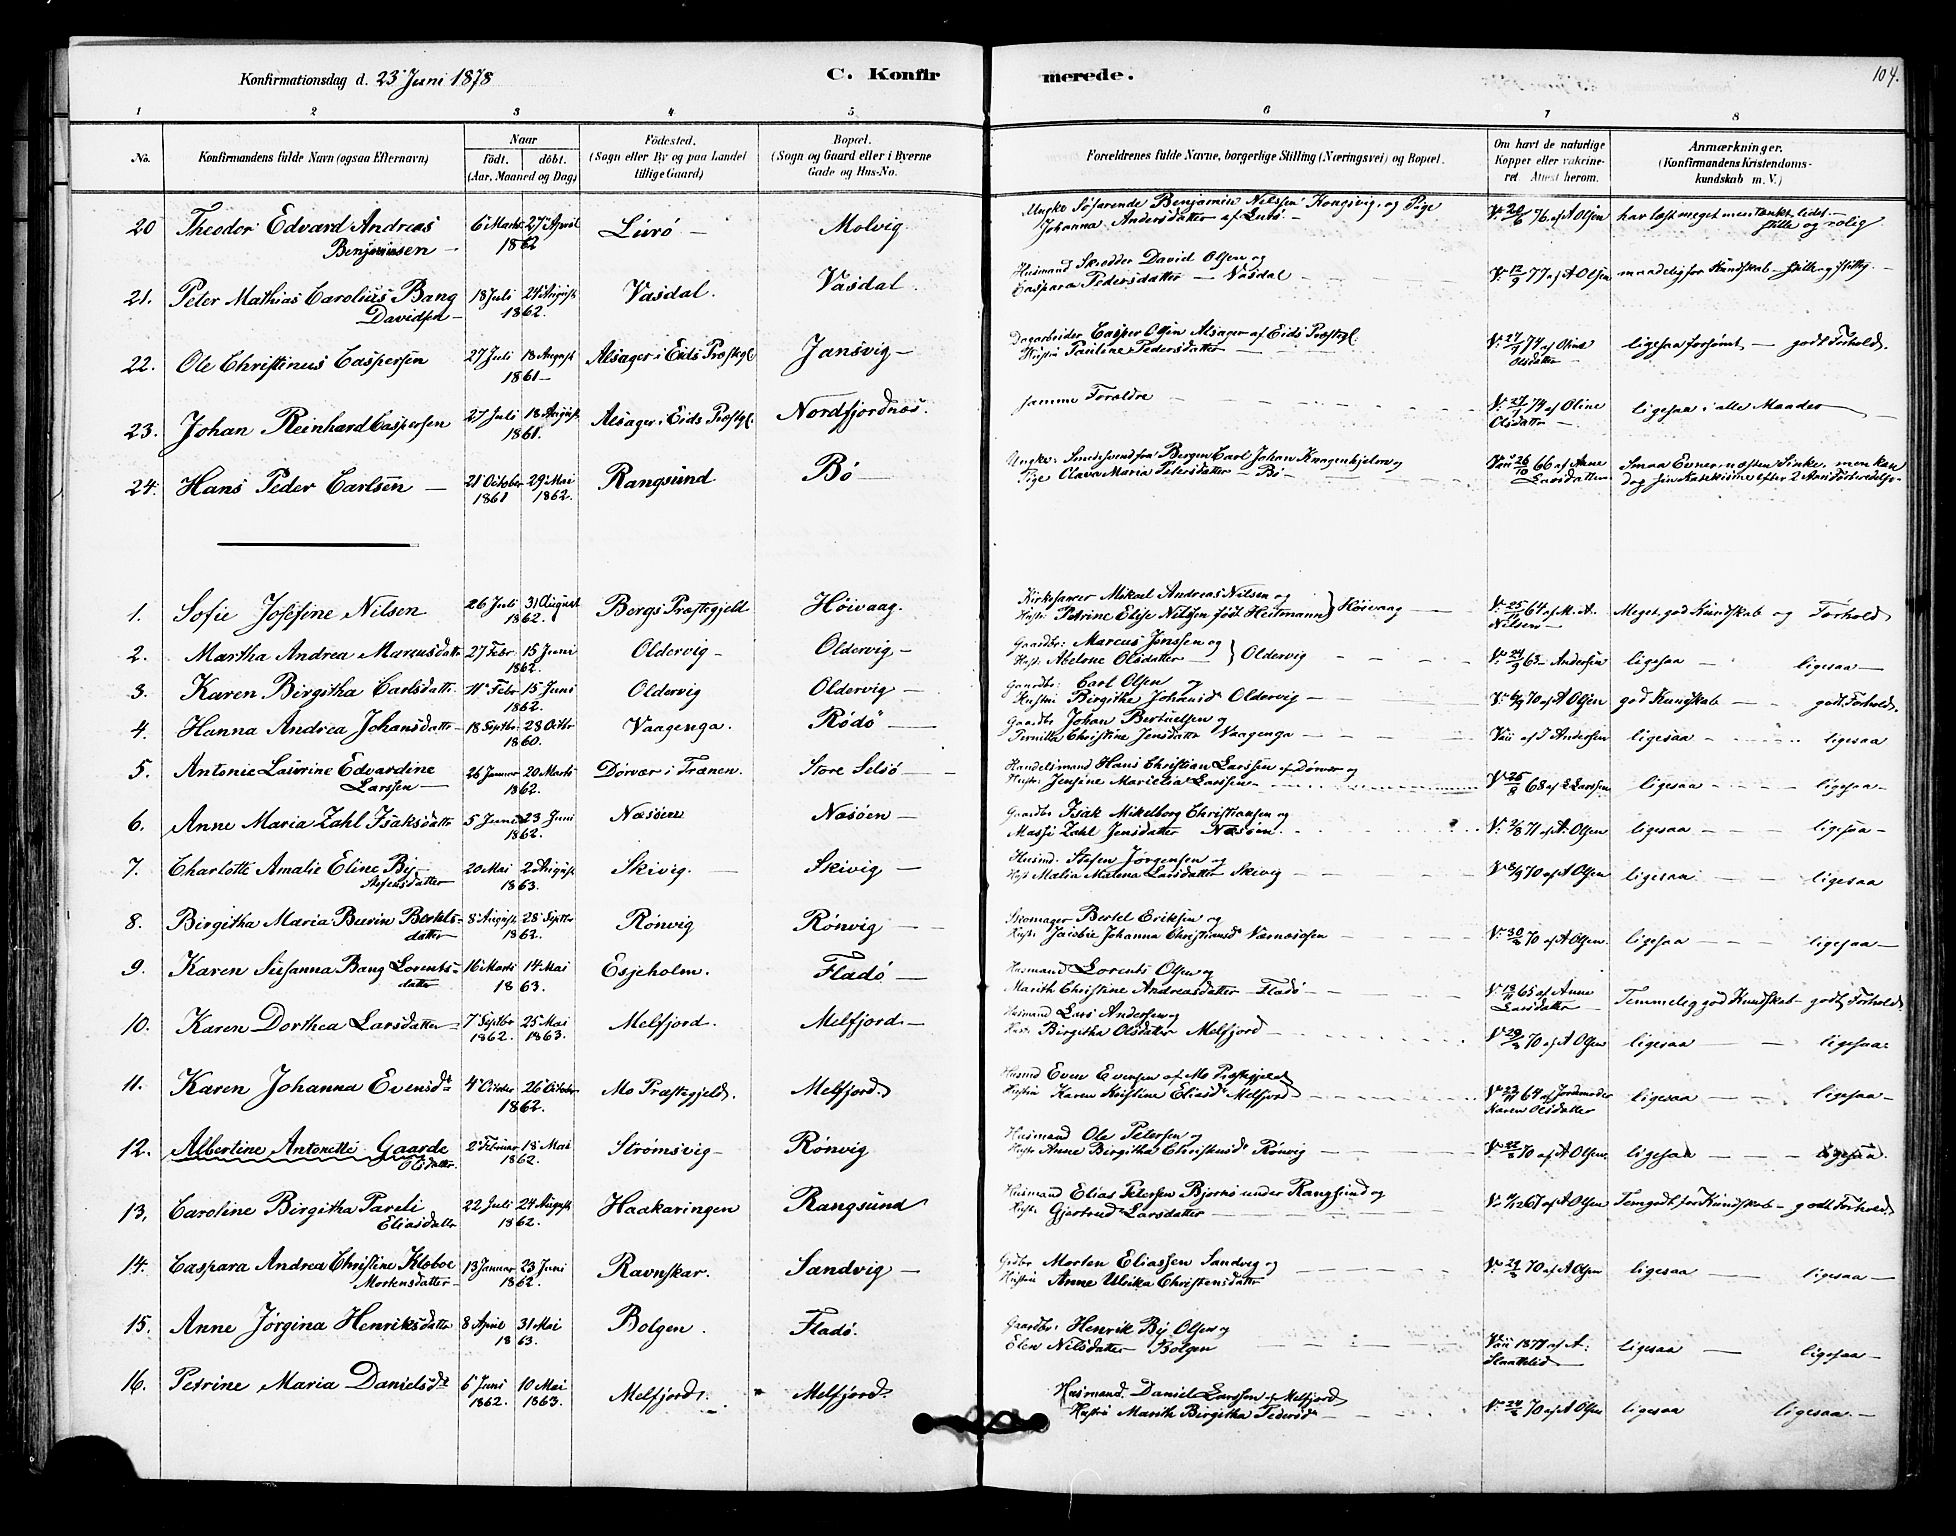 Konfirmationsdag d. 23 Juni 1878
C. Konfir merede.
104.
1 2 3 4 5 6 7 8
No.
Konfirmandens fulde Navn (ogsaa Efternavn)
Naar
födt. döbt.
(Aar, Maaned og Dag)
Födested.
(Sogn eller By og paa Landet
tillige Gaard)
Bopæl.
(Sogn og Gaard eller i Byerne
Gade og Hus-No.
Forældrenes fulde Navne, borgerlige Stilling (Næringsvei) og Bopæl.
Om havt de naturlige
Kopper eller vakcine-
ret. Attest herom.
Anmærkninger.
(Konfirmandens Kristendoms-
kundskab m. V.)
20 Theodor Edvard Andreas 6 Marts 27 April Lurö Molvig. Ungke Söfarende Benjamin Nilssen Kongsvig, og Pige V. 20/6 76 af A Olsen har læst meget men tænkt lidet.
Benjaminsen 1862 Johanna Andersdatter af Lurö. stille og rolig.
21. Peter Mathias Carolius Bang 18 Juli 24 August Vasdal. Vasdal Husmand Skrædder David Olsen og V. 12/9 77 af A Olsen maadelig for Kundskab stille og flittig.
Davidsen 1862. Caspara Pedersdatter Vasdal
22. Ole Christinus Caspersen 27 Juli 18 August Alsager i Eids Præstegl. Jansvig Dagarbeider Casper Olsen Alsager af Eids Præstgl. V. 27/1 74 af Oline ligesaa forsömt godt Forhold.
1861 Hustru Pauline Pedersdatter Olsdatter
23. Johan Reinhard Caspersen 27 Juli 18 August Alsager i Eids Præstgl. Nordfjordnæs. samme Forældre V. 27/1 74 af Oline ligesaa i alle Maader
1861. Olsdatter
24. Hans Peder Carlsen 21 October 29 Mai Rangsund Bö Ungk. Smedesvend fra Bergen Carl Johan Kragenhjelm og Vac 26/10 66 af Anne Smaa Evner, næsten Sinke, men kan
1861 1862. Pige Olava Maria Petersdatter Bö Larsdatter dog sin Katekisme efter 2 Aars Forberedelse.
1. Sofie Josefine Nilsen 26 Juli 31 August Bergs Præstegjeld Höivaag. Kirkesanger Mikael Andreas Nilsen og V. 25/11 64 af M. A. Meget god Kundskab og Forhold
1862. Hust. Petrine Elise Nilsen födt Heitmann Höivaag Nilsen
2. Martha Andrea Marcusdatt 27 Febr 15 Juni Oldervig Oldervig Gaardbr. Marcus Jenssen og V. 24/9 63 Andersen ligesaa ligesaa
1862. Hust. Abelone Olsdatter Oldervig
3. Karen Birgitha Carlsdatt. 11 Febr 15 Juni Oldervig Oldervig Gaardbr. Carl Olsen og V. 6/9 70 af A Olsen god Kundskab godt Forhold.
1862. Hustru Birgithe Johansd Oldervig
4. Hanna Andrea Johansdatt 18 Septbr. 28 Octbr Vaagenga. Rödö Gaardbr Johan Bertuelsen og Vac af J Andersen ligesaa ligesaa
1860. Pernilla Christine Jensdatt Vaagenga
5. Antonie Laurine Edvardine 26 Januar 20 Marts Dörvær i Trænen. Store Selsö Handelsmand Hans Christian Larssen af Dörvær og V. 25/8 68 af E Larssen ligesaa ligesaa
Larssen 1862. Hustr. Jensine Marielia Larssen
6. Anne Maria Zahl Isaksdatt 5 Juni 23 Juni Næsöen Næsöen Gaardbr Isak Mikelborg Christiansen og V. 2/8 71 af A. Olsen ligesaa ligesaa
1862. Massi Zahl Jensdatter Næsöen
7. Charlotte Amalie Eline By 20 Mai 2 August Skivig. Skivig Husmd. Stefen Jörgensen og V 8/9 70 af A Olsen ligesaa ligesaa
Stefensdatter 1863. Hust Malia Malena Larsdatter Skivig
8. Birgitha Maria Burin Bertels- 8 August 28 Septbr Rönvig Rönvig Skomager Bertel Eriksen og V. 30/2 70 af A Olsen. ligesaa ligesaa
datter 1862. Hustr. Jacobie Johanna Christiansd Værnæsosen
9. Karen Susanna Bang Lorents- 16 Marts 14 Mai Esjeholm. Fladö Husmand Lorents Olsen og V. 13/11 65 af Anne Temmelig god Kundskab godt Forhold.
datter 1863. Marith Christine Andreasdatter Fladö Larsdatter
10. Karen Dorthea Larsdatter 7 Septbr 25 Mai Melfjord. Melfjord Husmand Lars Andersen og V 29/3 70 af A Olsen ligesaa ligesaa
1862. 1863. Hust. Birgitha Olsdatter Melfjord
11. Karen Johanna Evensdt 4 October 26 October Mo Præstegjeld. Melfjord. Husmd Even Evensen af Mo Præstegjeld V. 23/11 64 af Jordemoder ligesaa ligesaa
1862. Hustru Karen Kristine Eliasd Melfjord Karen Olsdatter
12. Albertine Antonette Gaarde 2 Februar 18 Mai Strömsvig Rönvig Husmand Ole Petersen og V. 22/8 70 af A Olsen ligesaa ligesaa.
Olsdatter 1862. Hustr Anne Birgitha Christensd Rönvig
13. Caroline Birgitha Pareli 22 Juli 24 August Haakaringen Rangsund Husmand Elias Petersen Bjornö under Rangsund og V. 9/12 67 af A Olsen Temgodt for Kundskab godt Forhold.
Eliasdatter 1862. Hustr. Gjertrud Larsdatter
14. Caspara Andrea Christine Kloboe 13 Januar 23 Juni Ravnskar. Sandvig Gdbr Morten Eliassen Sandvig og V. 29/3 70 af A Olsen ligesaa ligesaa
Mortensdatter 1862. Hustru Anne Ulrika Christensdatter
15. Anne Jörgina Henriksdatter 8 April 31 Mai Bolgen. Fladö. Gaardbr. Henrik By Olsen og Vac 1877 af A. ligesaa ligesaa
1863. Elen Nilsdatter Bolgen Slattelid
16. Petrine Maria Danielsdt 6 Juni 10 Mai Melfjord. Melfjord. Husmand Daniel Larssen af Melfjord V. 24/3 70 af A Olsen ligesaa ligesaa.
1862. 1863. Hustru Marith Birgitha Pedersd